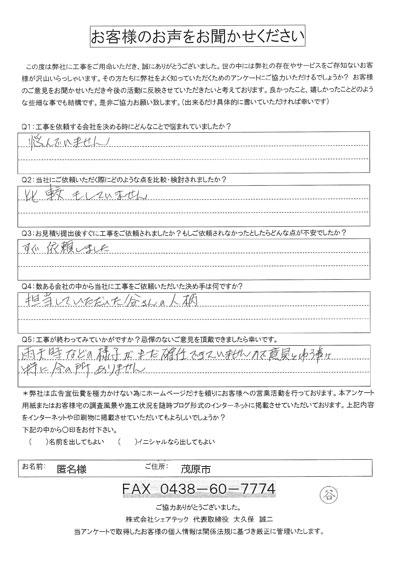 お客様のお声をお聞かせください
この度は弊社に工事をご用命いただき、誠にありがとうございました。世の中には弊社の存在やサービスをご存知ないお客
様が沢山いらっしゃいます。その方たちに弊社をよく知っていただくためのアンケートにご協力いただけるでしょうか? お客様
のご意見をお聞かせいただき今後の活動に反映させていただきたいと考えております。良かったこと、嬉しかったことどのよう
な些細な事でも結構です。是非ご協力お願い致します。(出来るだけ具体的に書いていただければ幸いです)
Q1:工事を依頼する会社を決める時にどんなことで悩まれていましたか?
悩んでいません
Q2:当社にご依頼いただく際にどのような点を比較・検討されましたか?
比較もしていません
Q3:お見積り提出後すぐに工事をご依頼されましたか?もしご依頼されなかったとしたらどんな点が不安でしたか?
すぐ依頼しました
Q4:数ある会社の中から当社に工事をご依頼いただいた決め手は何ですか?
担当していただいた谷さんの人柄
Q5:工事が終わってみていかがですか?忌憚のないご意見を頂戴できましたら幸いです。
雨天時などの様子がまだ確認できていませんので意見とゆう事は
特に今の所ありません
*弊社は広告宣伝費を極力かけない為にホームページだけを頼りにお客様への営業活動を行っております。本アンケート
用紙またはお客様宅の調査風景や施工状況を随時ブログ形式のインターネットに掲載させていただいております。上記内容
をインターネットや印刷物に掲載させていただいてもよろしいでしょうか?
下記の中から〇印をお付下さい。
( )名前を出してもよい ( )イニシャルなら出してもよい
お名前: 匿名様 ご住所: 茂原市
FAX 0438-60-7774
谷
ご協力ありがとうございました。
株式会社シェアテック 代表取締役 大久保 誠二
当アンケートで取得したお客様の個人情報は関係法規に基づき厳正に管理いたします。